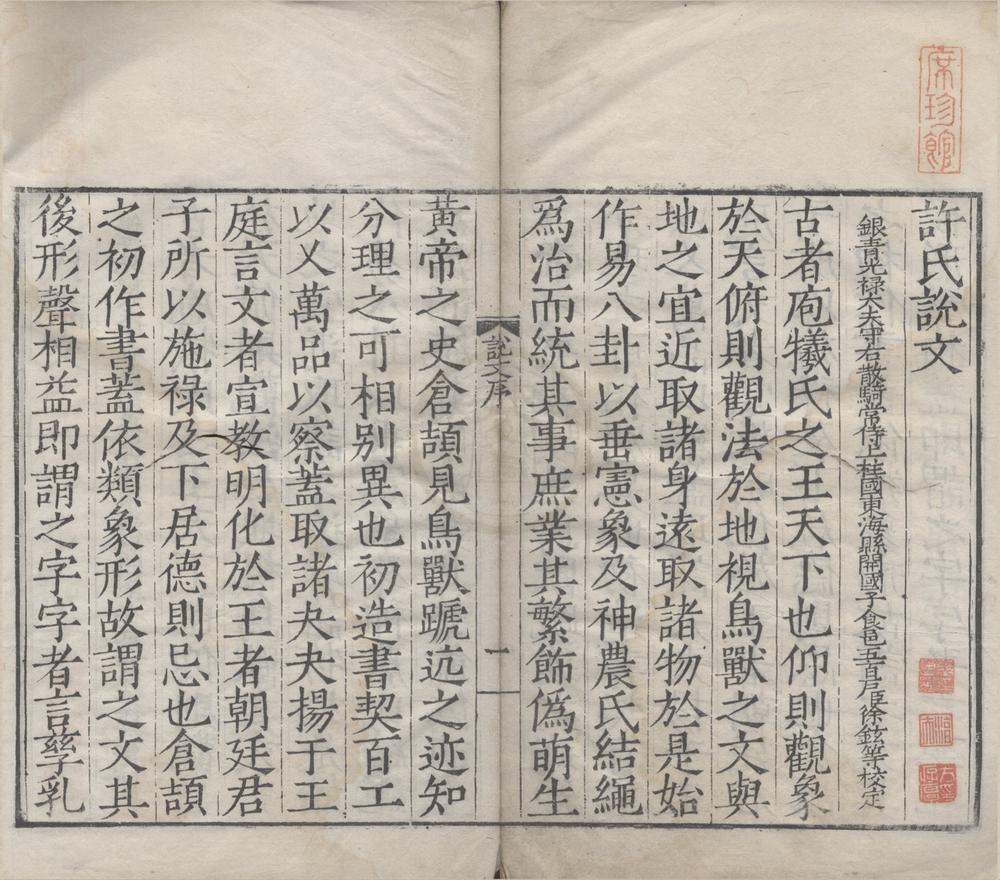 許氏說文
銀青光祿大夫守右散騎常侍上柱國東海縣開國子食邑五百戶臣徐鉉等校定
古者庖犧氏之王天下也仰則觀象
於天俯則觀法於地視鳥獸之文與
地之宜近取諸身遠取諸物於是始
作易八卦以垂憲象及神農氏結繩
爲治而統其事庶業其繁飾僞萌生
說文序
一
黃帝之史倉頡見鳥獸蹏迒之迹知
分理之可相別異也初造書契百工
以乂萬品以察蓋取諸夬夬揚于王
庭言文者宣教明化於王者朝廷君
子所以施祿及下居德則忌也倉頡
之初作書蓋依類象形故謂之文其
後形聲相益即謂之字字者言孳乳